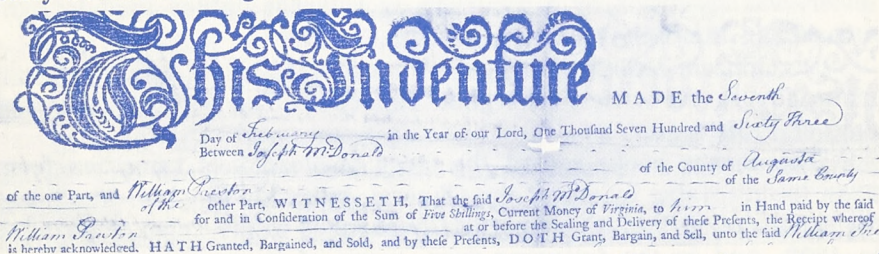 This Indenture MADE the Seventh
Day of February in the Year of our Lord, One Thousand Seven Hundred and Sixty Three
Between Joseph McDonald
of the County of Augusta
of the one Part, and William Preston of the Same County
of the other Part, WITNESSETH, That the said Joseph McDonald
for and in Consideration of the Sum of Five Shillings, Current Money of Virginia, to him in Hand paid by the said
William Preston at or before the Sealing and Delivery of these Presents, the Receipt whereof
is hereby acknowledged, HATH Granted, Bargained, and Sold, and by these Presents, DOTH Grant, Bargain, and Sell, unto the said William